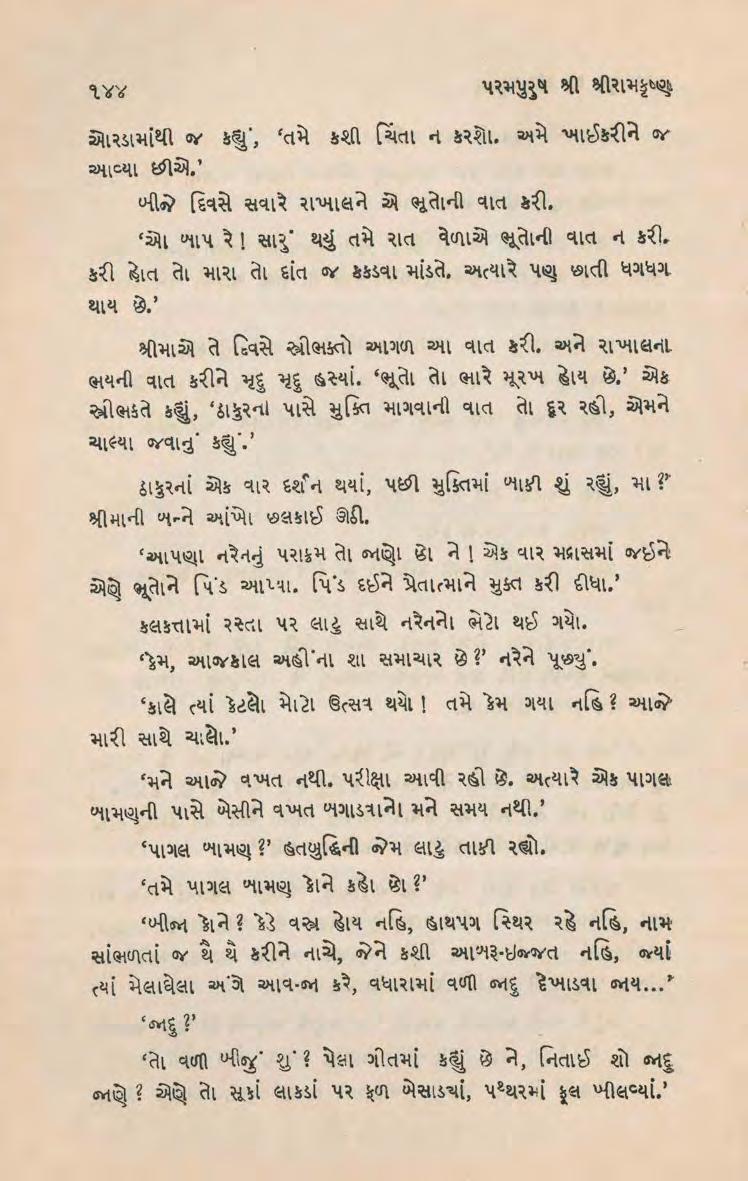 ૧૪૪ પરમપુરુષ શ્રી શ્રીરામકૃષ્ણ
ઓરડામાંથી જ કહ્યું, ‘તમે કશી ચિંતા ન કરશો. અમે ખાઈકરીને જ
આવ્યા છીએ.’
બીજે દિવસે સવારે રાખાલને એ ભૂતોની વાત કરી.
‘ઓ બાપ રે! સારું થયું તમે રાત વેળાએ ભૂતોની વાત ન કરી.
કરી હોત તો મારા તો દાંત જ કકડવા માંડતે. અત્યારે પણ છાતી ધગધગ
થાય છે.’
શ્રીમાએ તે દિવસે સ્ત્રીભક્તો આગળ આ વાત કરી. અને રાખાલના
ભયની વાત કરીને મૃદુ મૃદુ હસ્યાં. ‘ભૂતો તો ભારે મૂરખ હોય છે.’ એક
સ્ત્રીભક્તે કહ્યું, ‘ઠાકુરના પાસે મુક્તિ માગવાની વાત તો દૂર રહી, એમને
ચાલ્યા જવાનું કહ્યું.’
ઠાકુરનાં એક વાર દર્શન થયાં, પછી મુક્તિમાં બાકી શું રહ્યું, મા ?’
શ્રીમાની બન્ને આંખો છલકાઈ ઊઠી.
‘આપણા નરેનનું પરાક્રમ તો જાણો છો ને ! એક વાર મદ્રાસમાં જઈને
એણે ભૂતોને પિંડ આપ્યા. પિંડ દઈને પ્રેતાત્માને મુક્ત કરી દીધા.’
કલકત્તામાં રસ્તા પર લાટુ સાથે નરેનનો ભેટો થઈ ગયો.
‘કેમ, આજકાલ અહીંના શા સમાચાર છે ?’ નરેને પૂછ્યું.
‘કાલે ત્યાં કેટલો મોટો ઉત્સવ થયો ! તમે કેમ ગયા નહિ ? આજે
મારી સાથે ચાલો.’
‘મને આજે વખત નથી. પરીક્ષા આવી રહી છે. અત્યારે એક પાગલ
બામણની પાસે બેસીને વખત બગાડવાનો મને સમય નથી.’
‘પાગલ બામણ ?’ હતબુદ્ધિની જેમ લાટુ તાકી રહ્યો.
‘તમે પાગલ બામણ કોને કહો છો ?’
‘બીજા કોને ? કેડે વસ્ત્ર હોય નહિ, હાથપગ સ્થિર રહે નહિ, નામ
સાંભળતાં જ થૈ થૈ કરીને નાચે, જેને કશી આબરૂ-ઇજ્જત નહિ, જ્યાં
ત્યાં મેલાઘેલા અંગે આવ-જા કરે, વધારામાં વળી જાદુ દેખાડવા જાય...’
‘જાદુ ?’
‘તો વળી બીજું શું ? પેલા ગીતમાં કહ્યું છે ને, નિતાઈ શો જાદુ
જાણે ? એણે તો સૂકાં લાકડાં પર ફળ બેસાડ્યાં, પથ્થરમાં ફૂલ ખીલવ્યાં.’